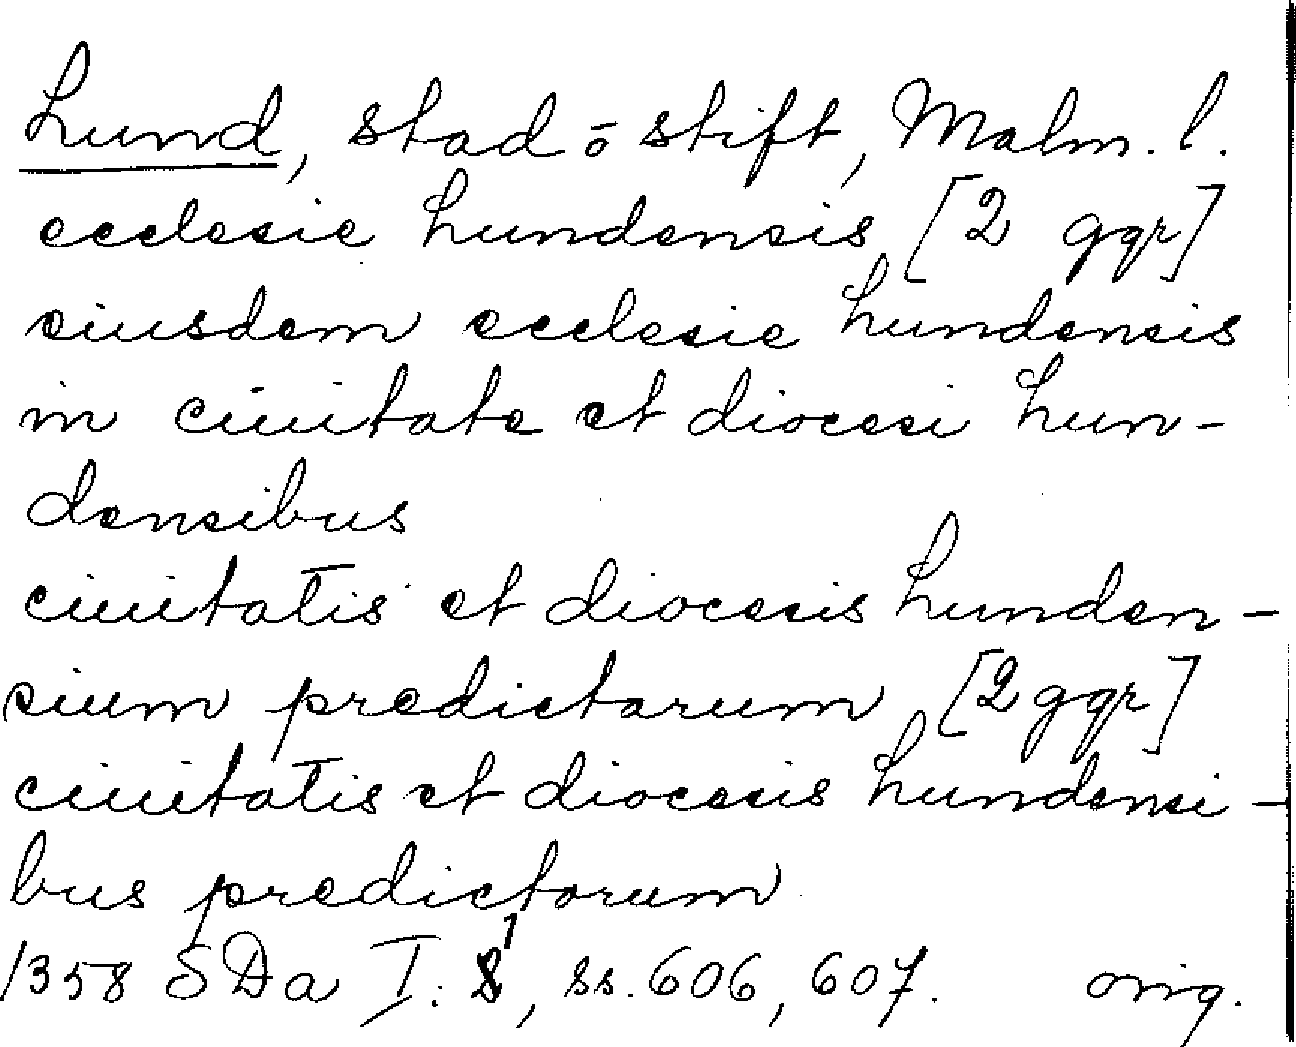 Lund, stad o stift, Malm. l.
ecclesie Lundensis [2 ggr]
eiusdem ecclesie Lundensis
in ciuitate et diocesi Lun-
densibus
ciuitatis et diocesis Lunden-
sium predictarum [2 ggr]
ciuitatis et diocesis Lundensi-
bus predictarum
1358 SDa I: 1, ss. 606, 607. orig.